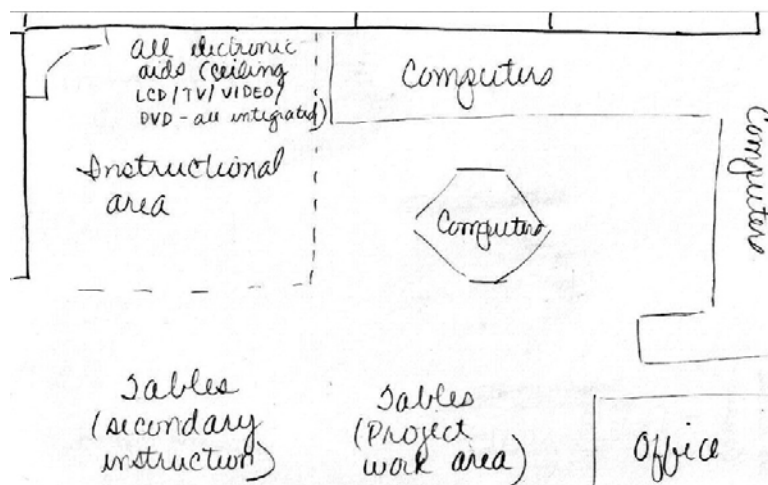 all electronic
aids (ceiling
LCD/TV/VIDEO/
DVD - all integrated)
Instructional
area
Computers
Computers
Computers
Tables
(secondary
instruction)
Tables
(Project
work area)
Office